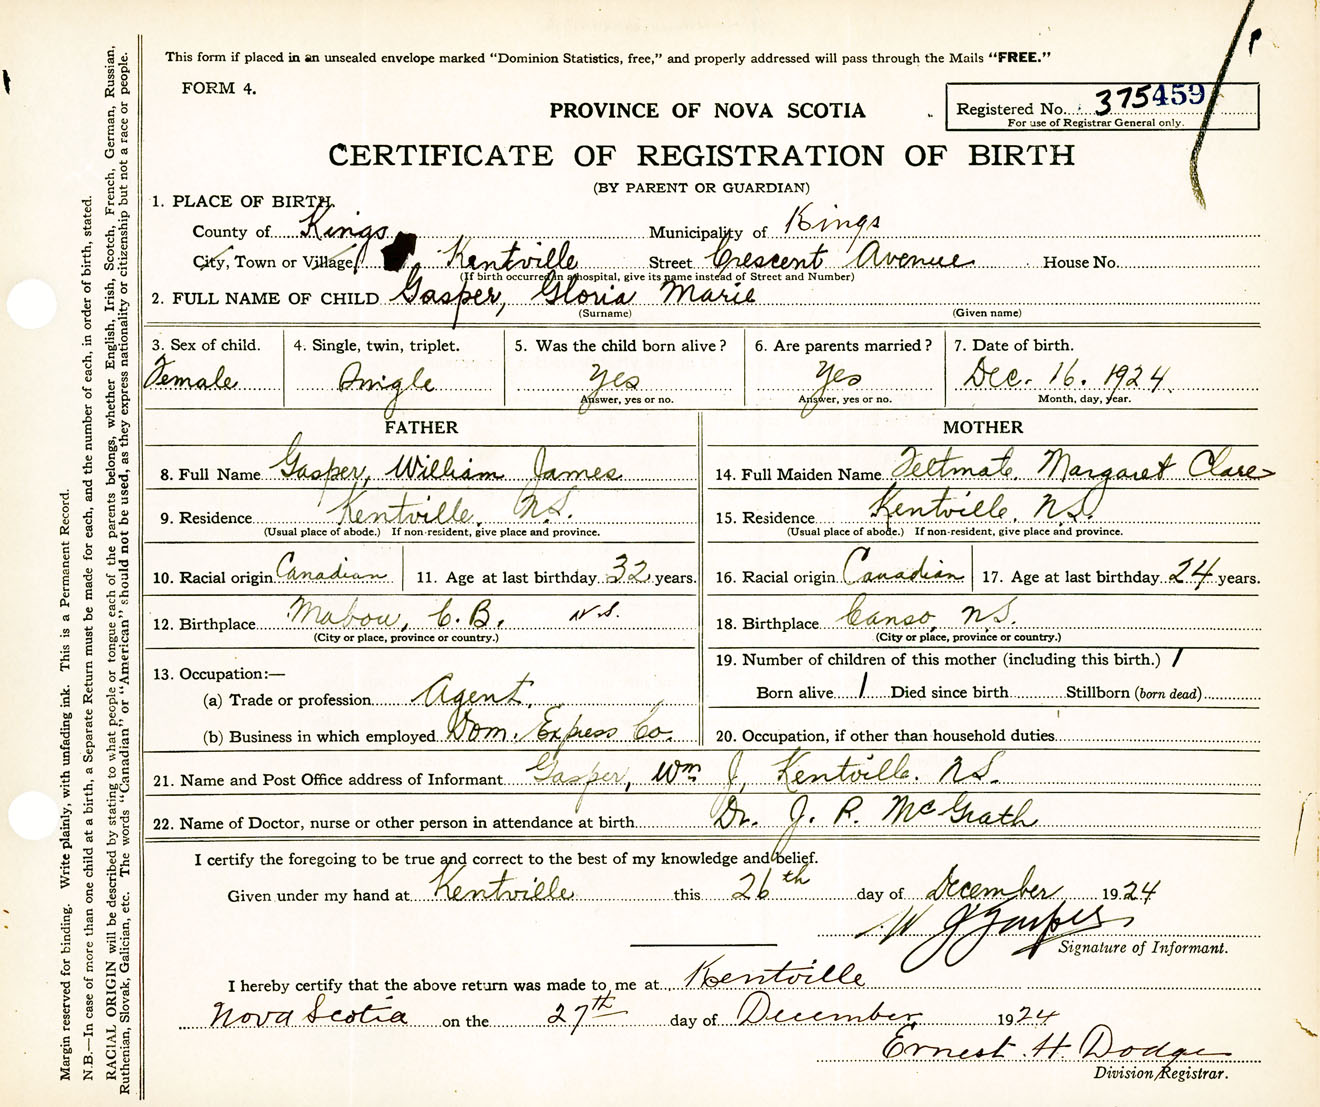 This form if placed in an unsealed envelope marked “Dominion Statistics, free,” and properly addressed will pass through the Mails “FREE.”
FORM 4.
PROVINCE OF NOVA SCOTIA
Registered No. 375459
For use of Registrar General only.
CERTIFICATE OF REGISTRATION OF BIRTH
(BY PARENT OR GUARDIAN)
1. PLACE OF BIRTH.
County of Kings Municipality of Kings
City, Town or Village, Kentville Street Crescent Avenue House No.
(If birth occurred in a hospital, give its name instead of Street and Number)
2. FULL NAME OF CHILD Gasper, Gloria Marie
(Surname) (Given name)
3. Sex of child. 4. Single, twin, triplet. 5. Was the child born alive? 6. Are parents married? 7. Date of birth.
Female Single Yes Yes Dec. 16. 1924.
Answer, yes or no. Answer, yes or no. Month, day, year.
FATHER MOTHER
8. Full Name Gasper, William James 14. Full Maiden Name Feltmate, Margaret Clare
9. Residence Kentville, N.S. 15. Residence Kentville, N.S.
(Usual place of abode.) If non-resident, give place and province. (Usual place of abode.) If non-resident, give place and province.
10. Racial origin Canadian 11. Age at last birthday 32 years. 16. Racial origin Canadian 17. Age at last birthday 24 years.
12. Birthplace Mabou, C.B. N.S. 18. Birthplace Canso, N.S.
(City or place, province or country.) (City or place, province or country.)
13. Occupation:— 19. Number of children of this mother (including this birth.) 1
(a) Trade or profession Agent. Born alive 1 Died since birth Stillborn (born dead)
(b) Business in which employed Dom. Express Co. 20. Occupation, if other than household duties
21. Name and Post Office address of Informant Gasper, Wm J, Kentville. N.S.
22. Name of Doctor, nurse or other person in attendance at birth Dr. J. P. McGrath
I certify the foregoing to be true and correct to the best of my knowledge and belief.
Given under my hand at Kentville this 26th day of December 1924
W J Gasper
Signature of Informant.
I hereby certify that the above return was made to me at Kentville
Nova Scotia on the 27th day of December 1924
Ernest H. Dodge
Division Registrar.
Margin reserved for binding. Write plainly, with unfading ink. This is a Permanent Record.
N.B.—In case of more than one child at a birth, a Separate Return must be made for each, and the number of each, in order of birth, stated.
RACIAL ORIGIN will be described by stating to what people or tongue each of the parents belongs, whether English, Irish, Scotch, French, German, Russian,
Ruthenian, Slovak, Galician, etc. The words “Canadian” or “American” should not be used, as they express nationality or citizenship but not a race or people.